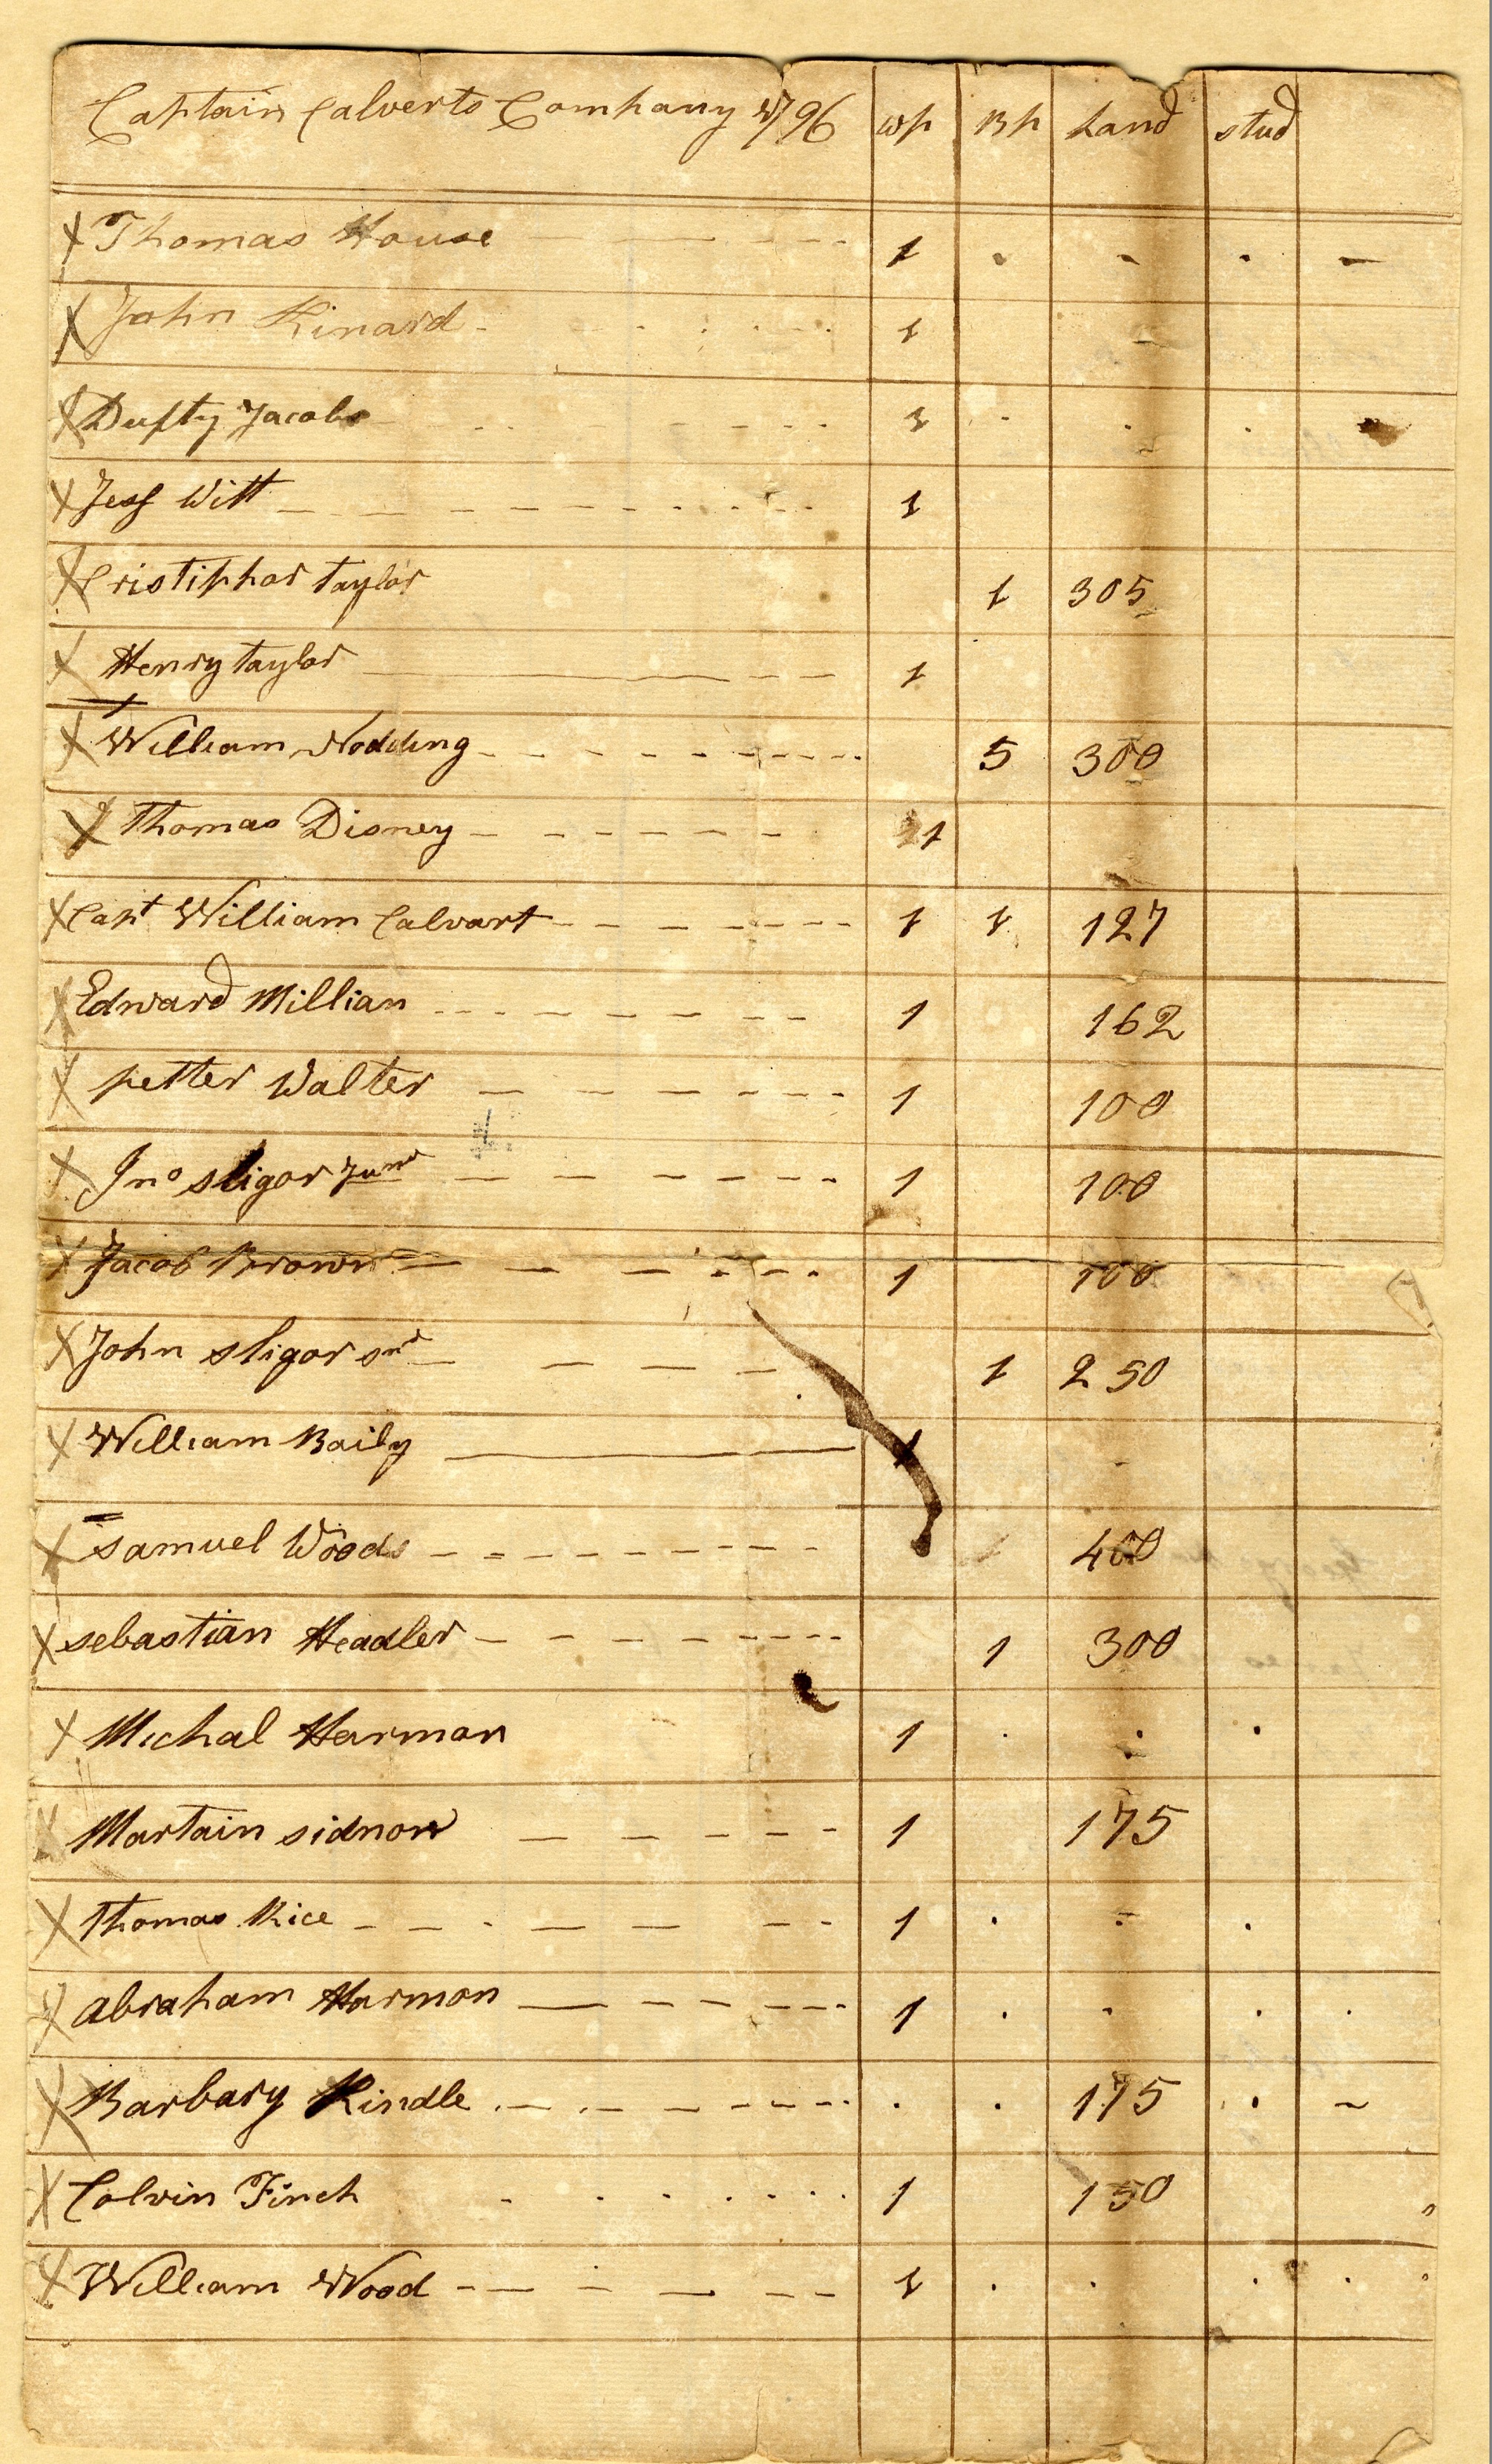 Captain Calverts Company 1796 wp Bp Land stud
X Thomas House 1
X John Kinard 1
X Dufty Jacobs 1
X Jess Witt 1
X Cristiphor taylor 1 305
X Henry taylor 1
X William Nodding 5 300
X Thomas Disney 1
X Capt William Calvart 1 1 127
X Edward Millian 1 162
X petter Walter 1 100
X Jno sligor Junr 1 100
X Jacob Brown 1 100
X John sligor snr 1 250
X William Baily 1
X samuel Woods 400
X sebastian Headler 1 300
X Michal Harmon 1
X Martain sidnor 1 175
X Thomas Rice 1
X abraham Harmon 1
X Barbary Kindle 175
X Colvin Finch 1 150
X William Wood 1